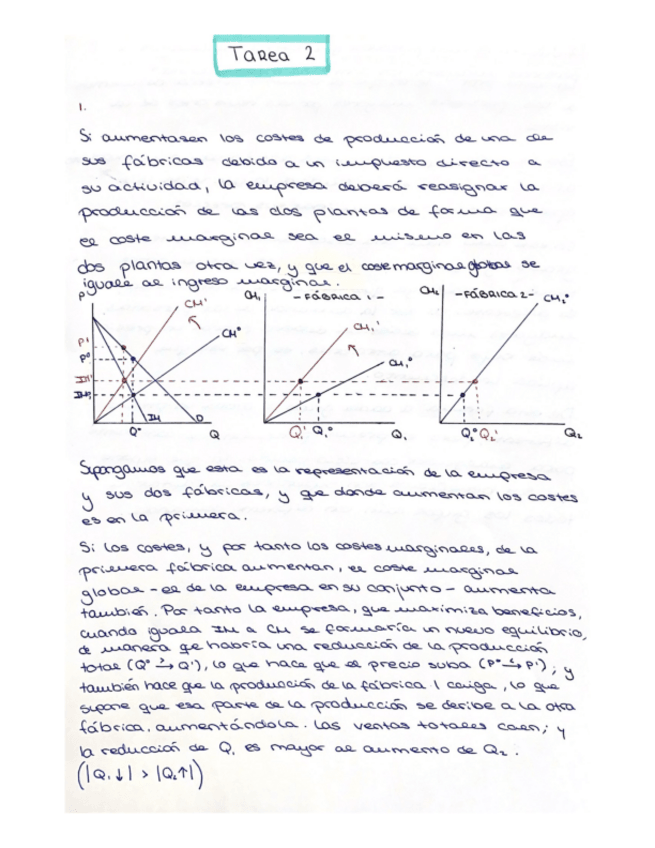 Tarea 2
1.
Si aumentasen los costes de producción de una de
sus fábricas debido a un impuesto directo a
su actividad, la empresa deberá reasignar la
producción de las dos plantas de forma que
el coste marginal sea el mismo en las
dos plantas otra vez, y que el coste marginal global se
iguale al ingreso marginal.
P CM' CM⁰ P' P⁰ IM' IM⁰ IM D Q⁰ Q
CM₁ -FÁBRICA 1- CM₁' CM₁⁰ Q₁' Q₁⁰ Q₁
CM₂ -FÁBRICA 2- CM₂⁰ Q₂⁰ Q₂' Q₂
Supongamos que esta es la representación de la empresa
y sus dos fábricas, y que donde aumentan los costes
es en la primera.
Si los costes, y por tanto los costes marginales, de la
primera fábrica aumentan, el coste marginal
global - el de la empresa en su conjunto - aumenta
también. Por tanto la empresa, que maximiza beneficios,
cuando iguala IM a CM se formaría un nuevo equilibrio,
de manera que habría una reducción de la producción
total (Q⁰ → Q'), lo que hace que el precio suba (P⁰ → P'); y
también hace que la producción de la fábrica 1 caiga, lo que
supone que esa parte de la producción se deribe a la otra
fábrica, aumentándola. Las ventas totales caen; y
la reducción de Q₁ es mayor al aumento de Q₂.
(|Q₁↓| > |Q₂↑|)